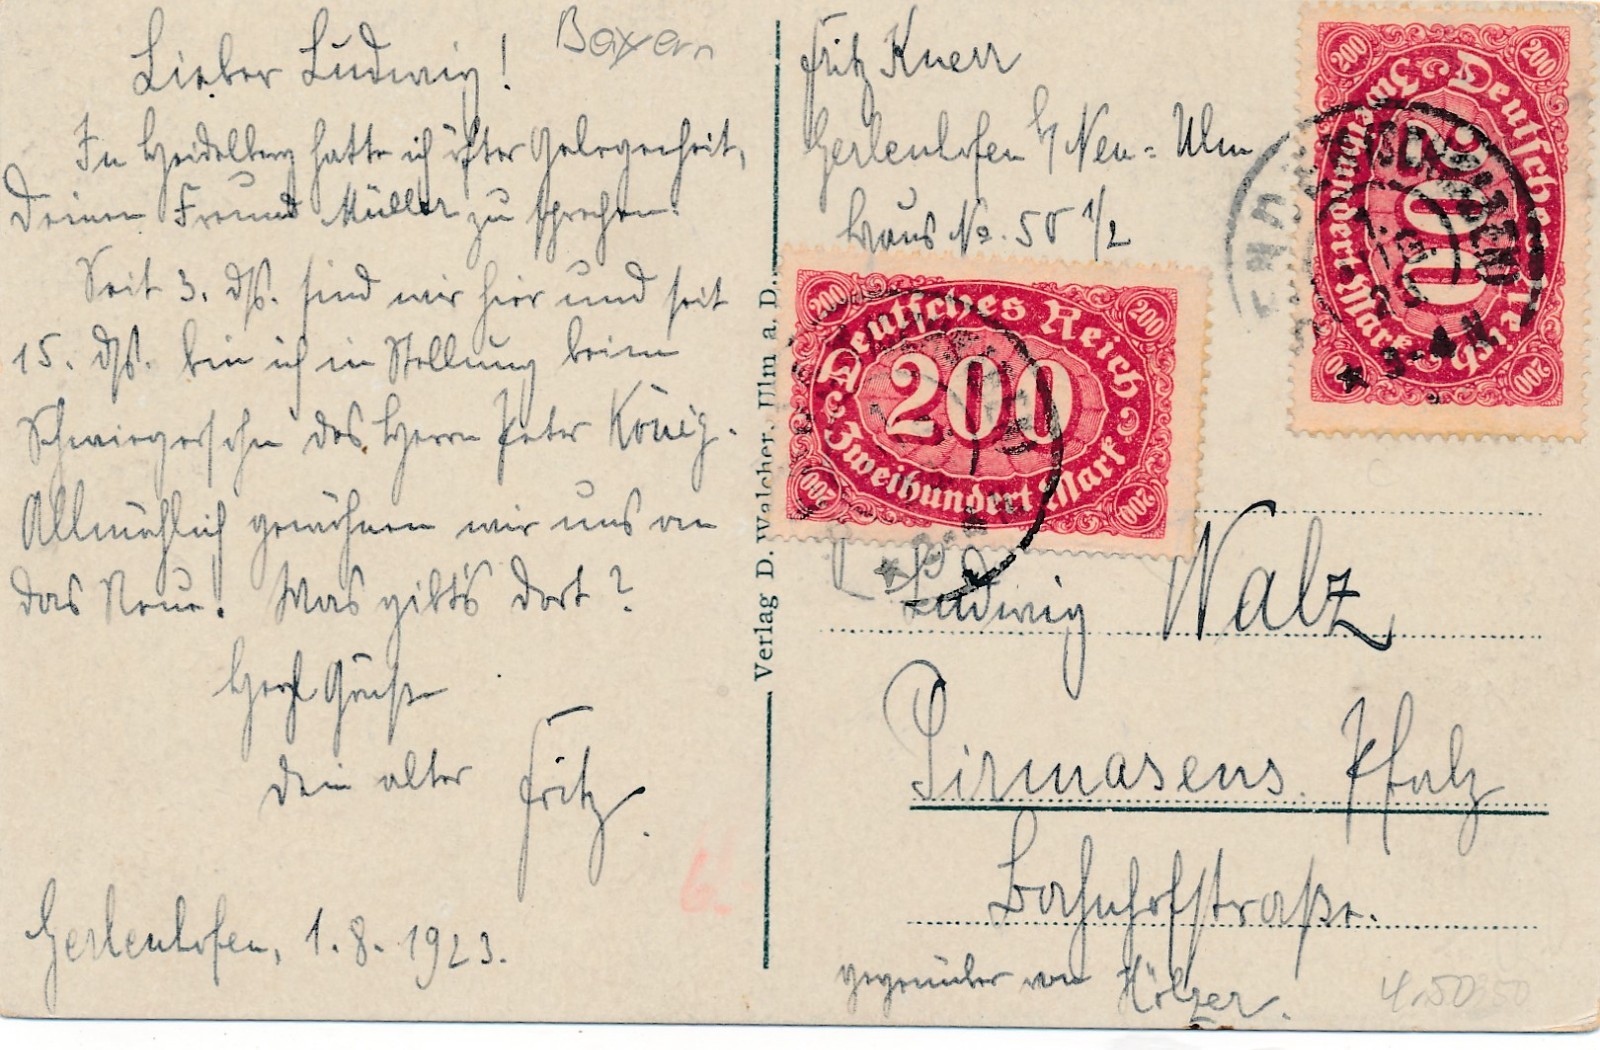 Bayern
Lieber Ludwig!
In Heidelberg hatte ich öfter Gelegenheit,
Deinen Freund Müller zu sprechen.
Seit 3. ds. sind wir hier und seit
15. ds. bin ich in Stellung beim
Schwiegersohn des Herrn Peter König.
Allmählich gewöhnen wir uns an
das Neue! Was gibt's dort?
Herzl Grüße
Dein alter Fritz.
Gerlenhofen, 1.8.1923.
Verlag D. Walcher, Ulm a. D.
Fritz Knerr
Gerlenhofen b/ Neu-Ulm
Haus No. 50 1/2
200 200
Deutsches Reich
200
Zweihundert Mark
200 200
200 200
Deutsches Reich
200
Zweihundert Mark
200 200
* 3-4 N
Ludwig Walz
Pirmasens. Pfalz
Bahnhofstraße.
gegenüber von Hölzer.
4.50